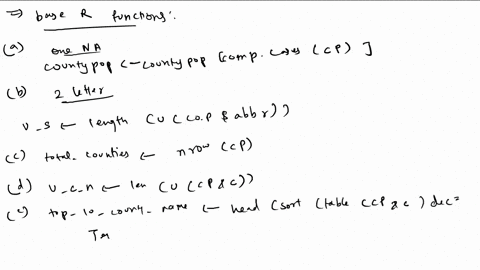 ⇒ base R functions:
(a) one NA
countypop <- countypop [comp. cases (cp) ]
(b) 2 letter
u_s <- length (u (co.p $ abbr))
(c) total_counties <- nrow (cp)
(d) u_c_n <- len (u (cp$c))
(e) top_10_county_name <- head (sort (table (cp$c) dec=